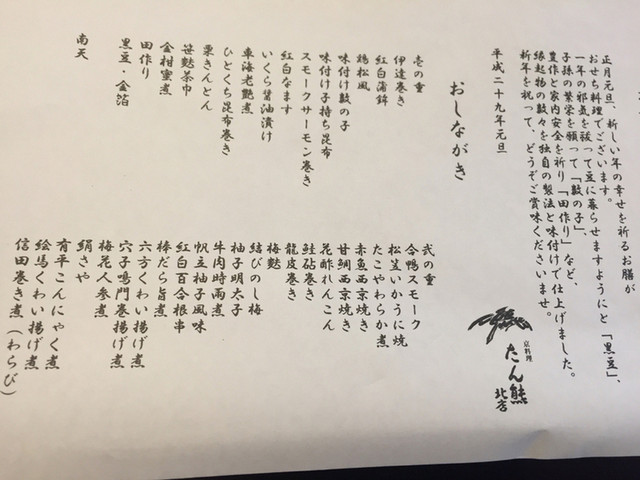 正月元旦、新しい年の幸せを祈るお膳が
おせち料理でございます。
一年の邪気を祓って豆に暮らせますようにと「黒豆」、
子孫の繁栄を願って「数の子」、
豊作と家内安全を祈り「田作り」など、
縁起物の数々を独自の製法と味付けで仕上げました。
新年を祝って、どうぞご賞味くださいませ。
平成二十九年元旦
京料理
たん熊
北店
おしながき
壱の重
伊達巻き
紅白蒲鉾
鶏松風
味付け数の子
味付け子持ち昆布
スモークサーモン巻き
紅白なます
いくら醤油漬け
車海老艶煮
ひとくち昆布巻き
栗きんとん
笹麩茶巾
金柑蜜煮
田作り
黒豆・金箔
南天
弐の重
合鴨スモーク
松笠いかうに焼
たこやわらか煮
赤魚西京焼き
甘鯛西京焼き
花酢れんこん
鮭砧巻き
龍皮巻き
梅麩
結びのし梅
柚子明太子
牛肉時雨煮
帆立柚子風味
紅白百合根串
棒だら旨煮
六方くわい揚げ煮
穴子鳴門巻揚げ煮
梅花人参煮
絹さや
有平こんにゃく煮
絵馬くわい揚げ煮
信田巻き煮(わらび)